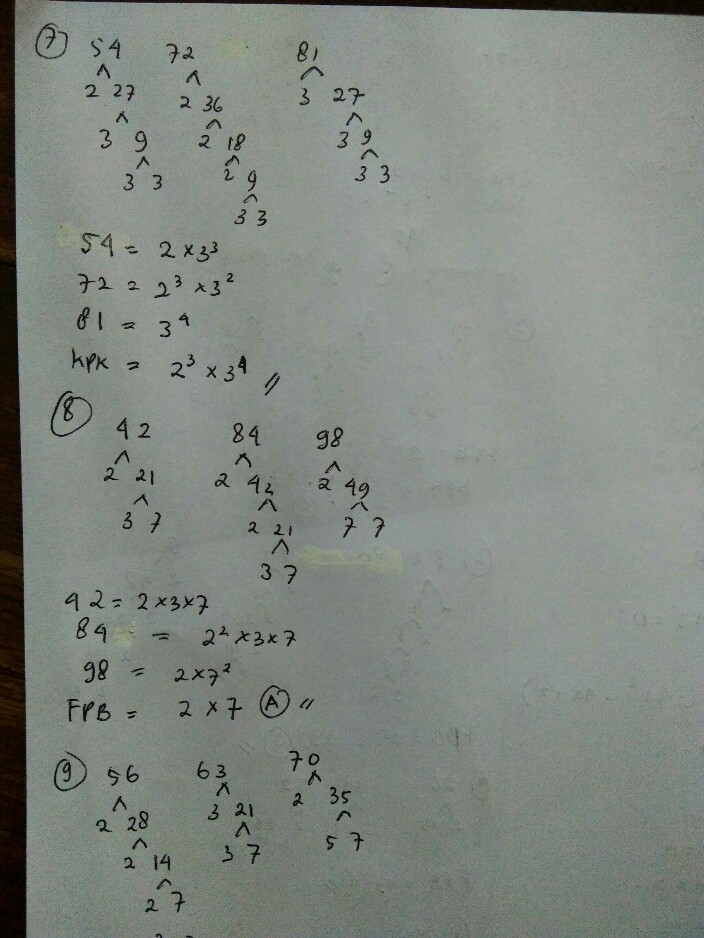 7 54 72 81
2 27 2 36 3 27
3 9 2 18 3 9
3 3 2 9 3 3
3 3
54 = 2 × 3³
72 = 2³ × 3²
81 = 3⁴
KPK = 2³ × 3⁴ //
8 42 84 98
2 21 2 42 2 49
3 7 2 21 7 7
3 7
42 = 2 × 3 × 7
84 = 2² × 3 × 7
98 = 2 × 7²
FPB = 2 × 7 (A) //
9 56 63 70
2 28 3 21 2 35
2 14 3 7 5 7
2 7